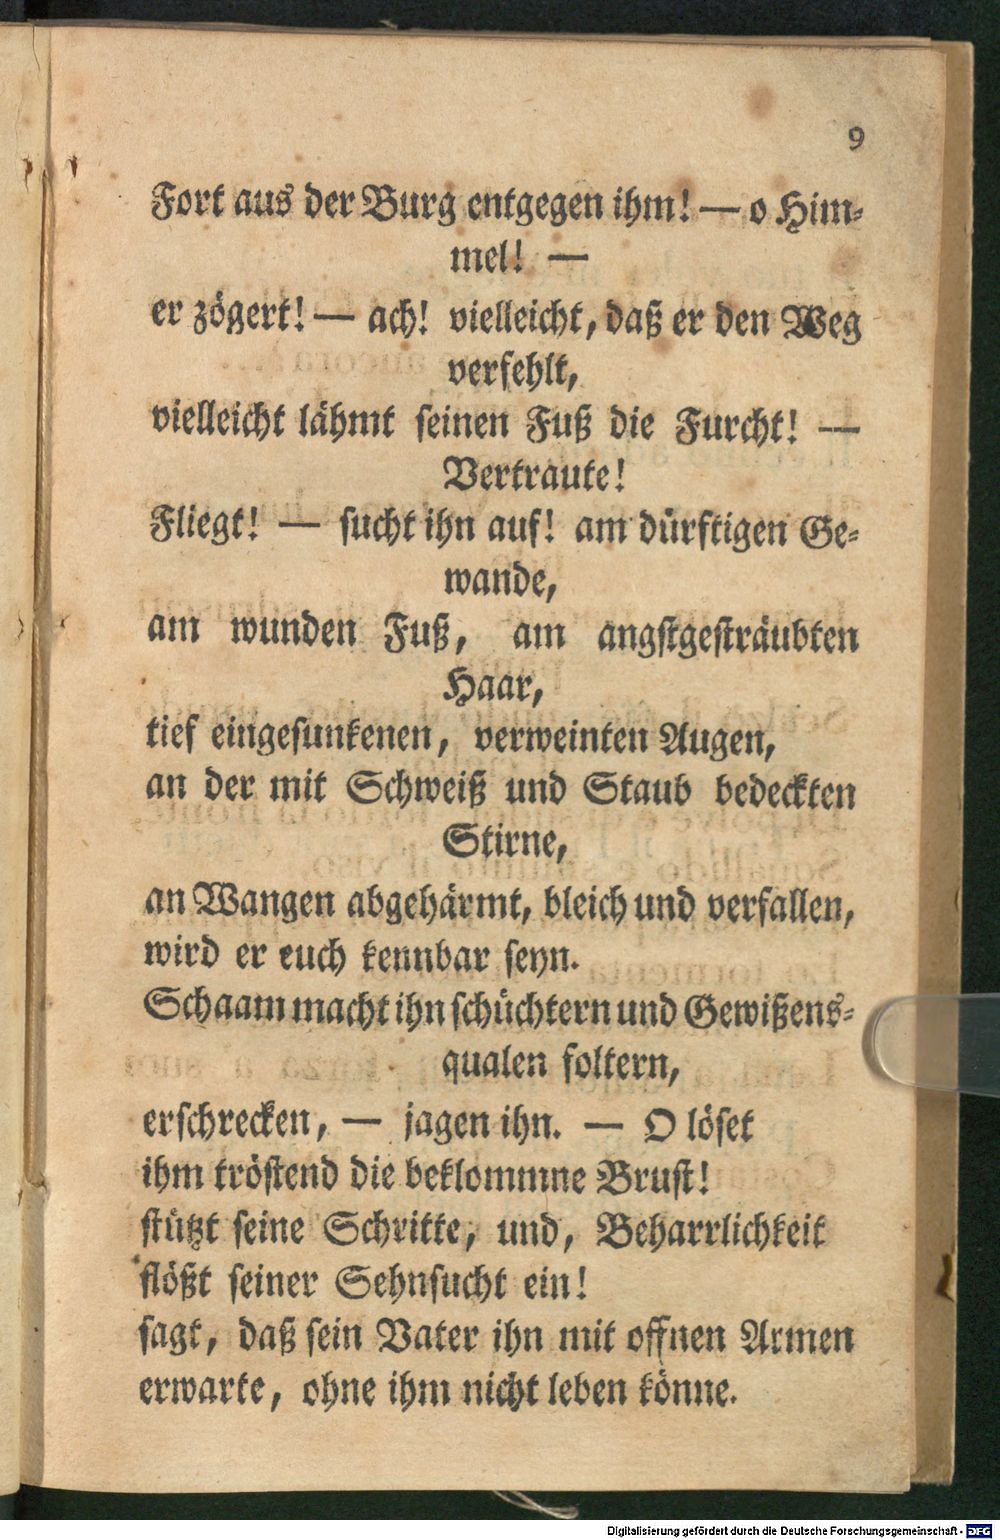 9
Fort aus der Burg entgegen ihm! — o Him-
mel! —
er zögert! — ach! vielleicht, daß er den Weg
verfehlt,
vielleicht lähmt seinen Fuß die Furcht! —
Vertraute!
Fliegt! — sucht ihn auf! am dürftigen Ge-
wande,
am wunden Fuß, am angstgesträubten
Haar,
tief eingesunkenen, verweinten Augen,
an der mit Schweiß und Staub bedeckten
Stirne,
an Wangen abgehärmt, bleich und verfallen,
wird er euch kennbar seyn.
Schaam macht ihn schüchtern und Gewißens-
qualen foltern,
erschrecken, — jagen ihn. — O löset
ihm tröstend die beklommne Brust!
stützt seine Schritte, und, Beharrlichkeit
flößt seiner Sehnsucht ein!
sagt, daß sein Vater ihn mit offnen Armen
erwarte, ohne ihm nicht leben könne.
Digitalisierung gefördert durch die Deutsche Forschungsgemeinschaft - DFG